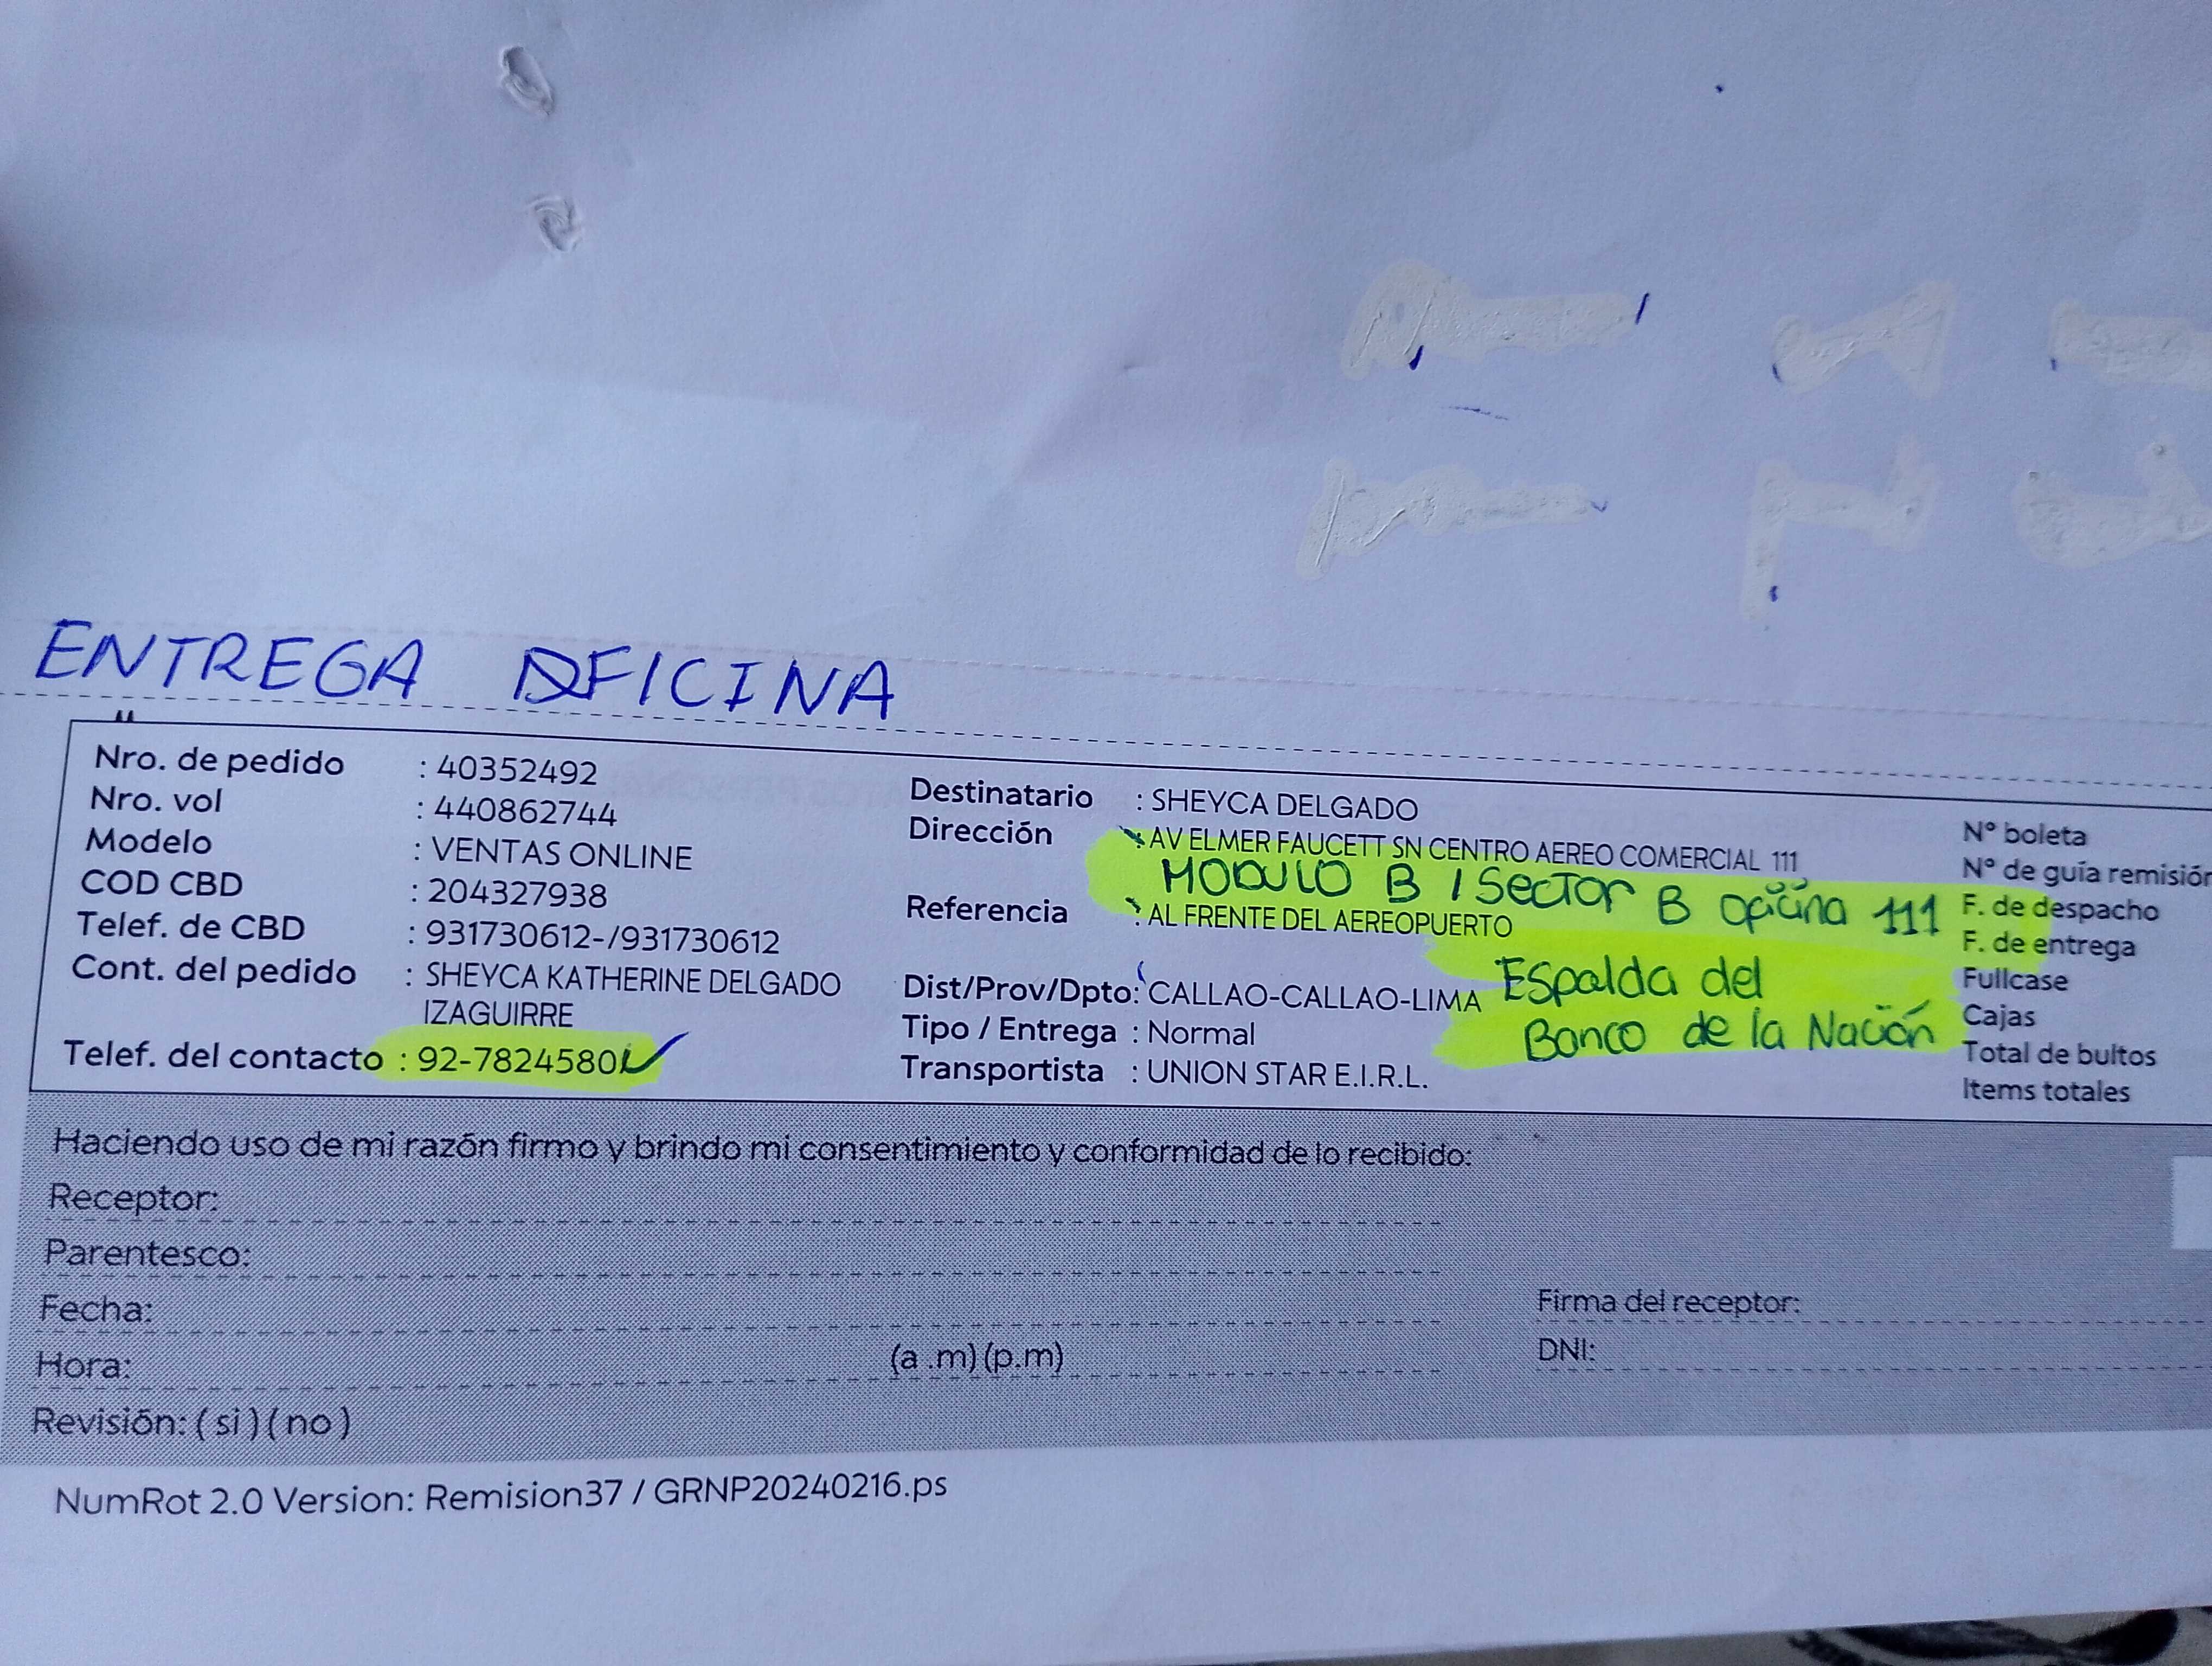 ENTREGA OFICINA
Nro. de pedido : 40352492
Nro. vol : 440862744
Modelo : VENTAS ONLINE
COD CBD : 204327938
Telef. de CBD : 931730612-/931730612
Cont. del pedido : SHEYCA KATHERINE DELGADO
IZAGUIRRE
Telef. del contacto : 92-7824580
Destinatario : SHEYCA DELGADO
Dirección : AV ELMER FAUCETT SN CENTRO AEREO COMERCIAL 111
MODULO B / Sector B oficina 111
Referencia : AL FRENTE DEL AEREOPUERTO
Espalda del
Banco de la Nación
Dist/Prov/Dpto: CALLAO-CALLAO-LIMA
Tipo / Entrega : Normal
Transportista : UNION STAR E.I.R.L.
N° boleta
N° de guía remisión
F. de despacho
F. de entrega
Fullcase
Cajas
Total de bultos
Items totales
Haciendo uso de mi razón firmo y brindo mi consentimiento y conformidad de lo recibido:
Receptor:
Parentesco:
Fecha:
Hora: (a .m) (p.m)
Revisión: ( si ) ( no )
Firma del receptor:
DNI:
NumRot 2.0 Version: Remision37 / GRNP20240216.ps